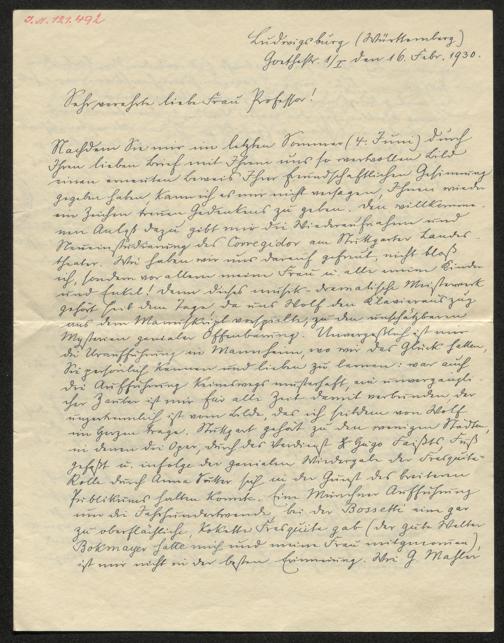 I.N. 121.492
Ludwigsburg (Württemberg)
Goethestr. 1/I den 16. Febr. 1930.
Sehr verehrte liebe Frau Professor!
Nachdem Sie mir im letzten Sommer (4. Juni) durch
Ihren lieben Brief mit Ihrem uns so wertvollen Bild
einen erneuten Beweis Ihrer freundschaftlichen Gesinnung
gegeben haben, kann ich es mir nicht versagen, Ihnen wieder
ein Zeichen treuen Gedenkens zu geben. Den willkomme-
nen Anlaß dazu gibt mir die Wiederaufnahme und
Neueinstudierung des Corregidor am Stuttgarter Landes-
theater. Wie haben wir uns darauf gefreut, nicht bloß
ich, sondern vor allem meine Frau u. alle meine Kinder
und Enkel! Denn dieses musik-dramatische Meisterwerk
gehört seit dem Tage, da uns Wolf den Klavierauszug
aus dem Manuskript vorspielte, zu den unschätzbaren
Mysterien genialer Offenbarung. Unvergeßlich ist mir
die Uraufführung in Mannheim, wo wir das Glück hatten,
Sie persönlich kennen und lieben zu lernen: war auch
die Aufführung keineswegs musterhaft, ein unvergängli-
cher Zauber ist mir für alle Zeit damit verbunden, der
unzertrennlich ist vom Bilde, das ich seitdem von Wolf
im Herzen trage. Stuttgart gehört zu den wenigen Städten,
in denen die Oper, durch das Verdienst Hugo Faißts, Fuß
gefaßt u. infolge der genialen Wiedergabe der Frasquita-
Rolle durch Anna Sutter sich in der Gunst des breiteren
Publikums halten konnte. Eine Münchner Aufführung
um die Jahrhundertwende, bei der Bossetti eine gar
zu oberflächliche, kokette Frasquita gab (der gute Walter
Bokmayer hatte mich und meine Frau mitgenommen)
ist mir nicht in der besten Erinnerung. Wie G. Mahler